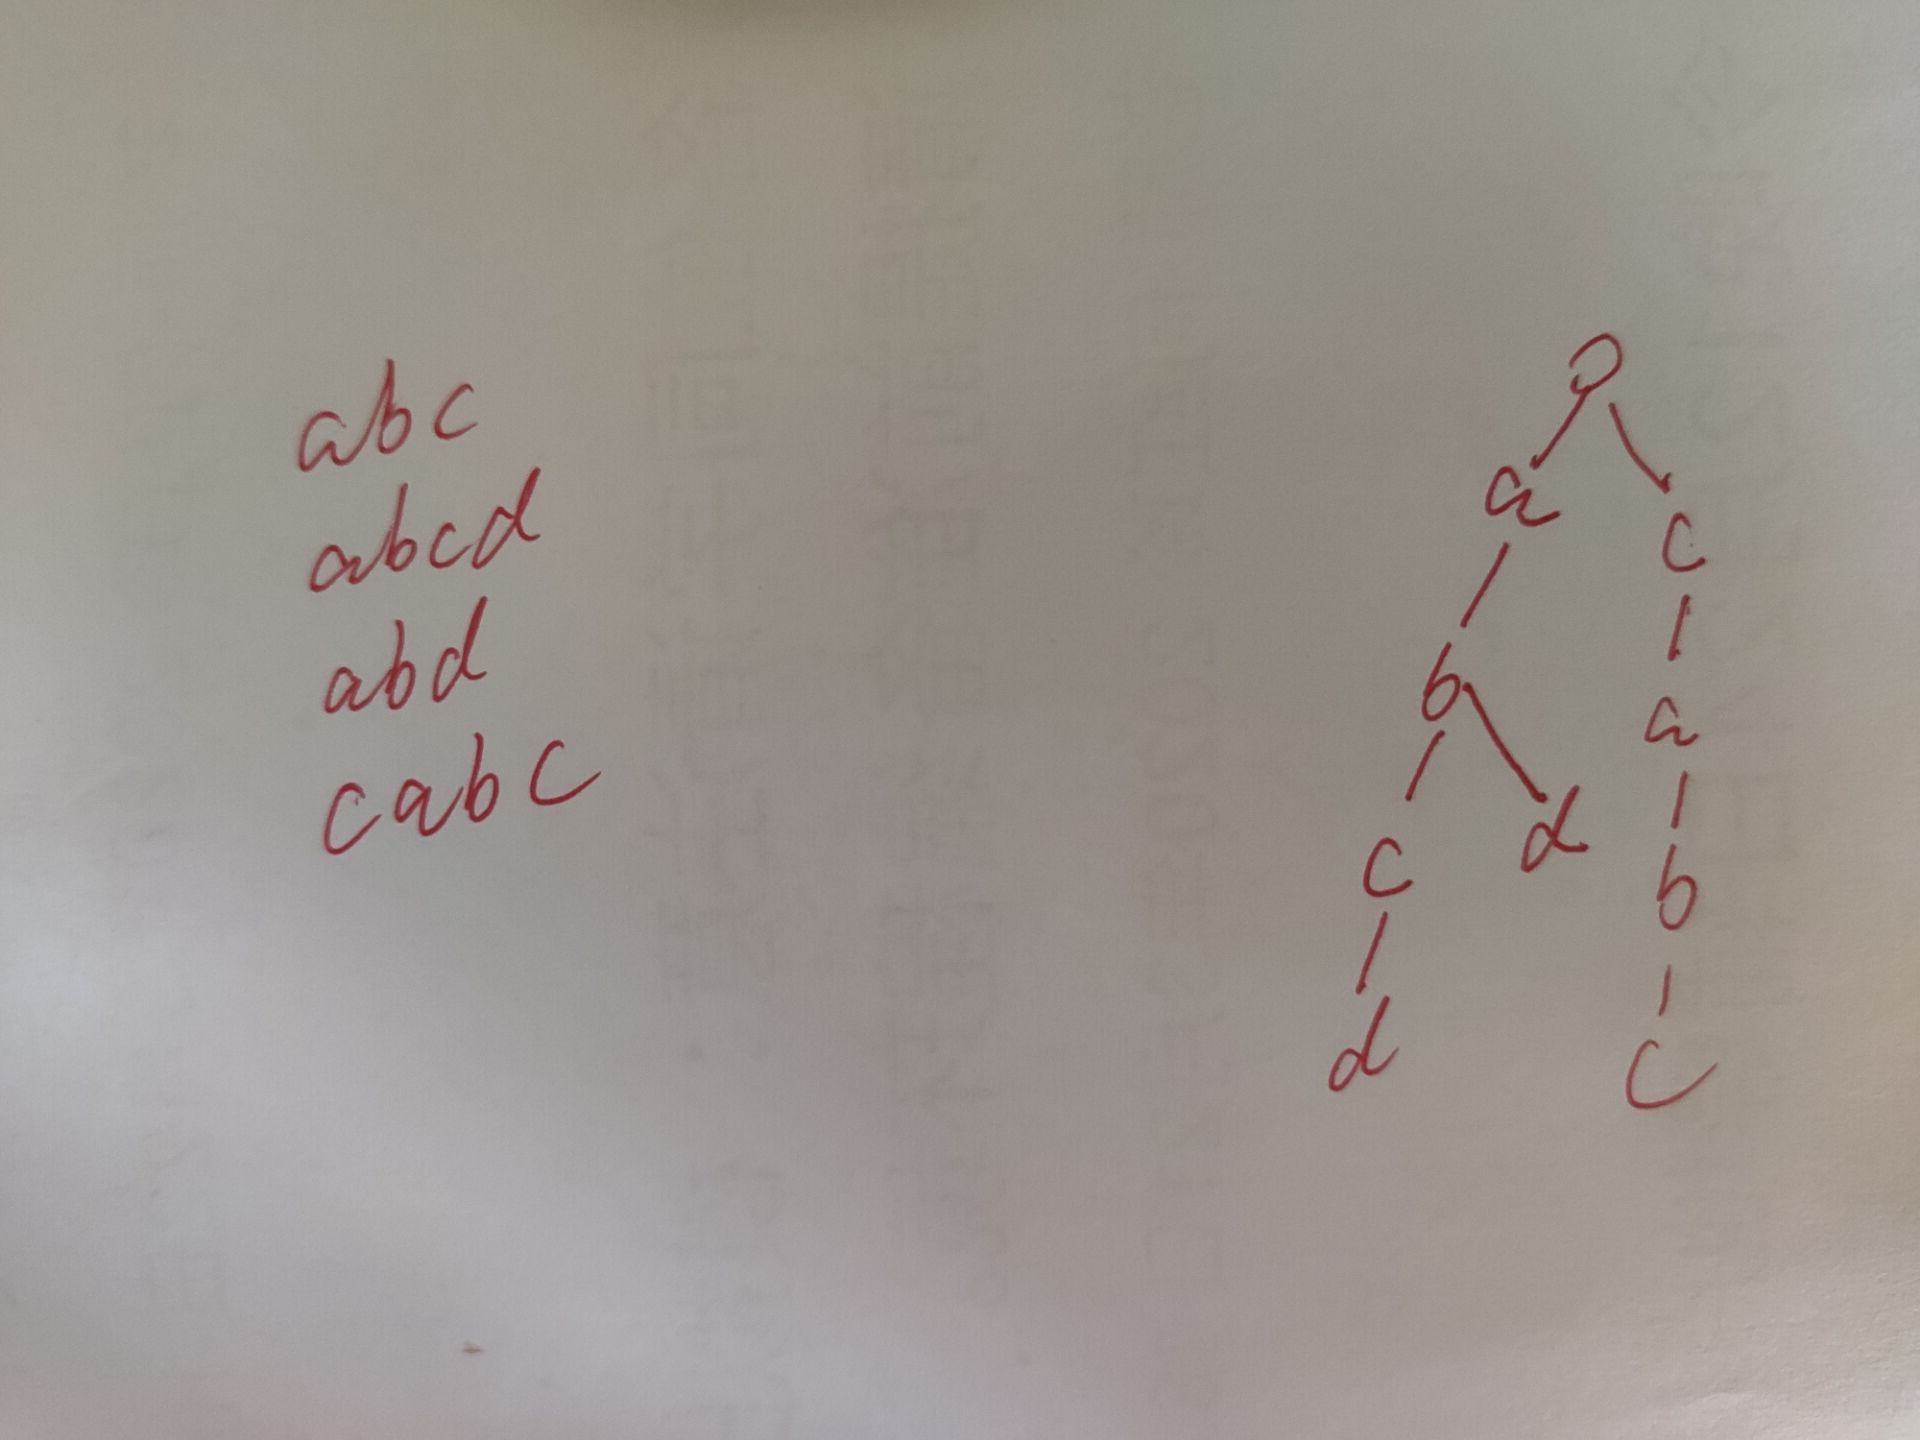 abc
abcd
abd
cabc
a
c
b
a
c
d
b
d
c